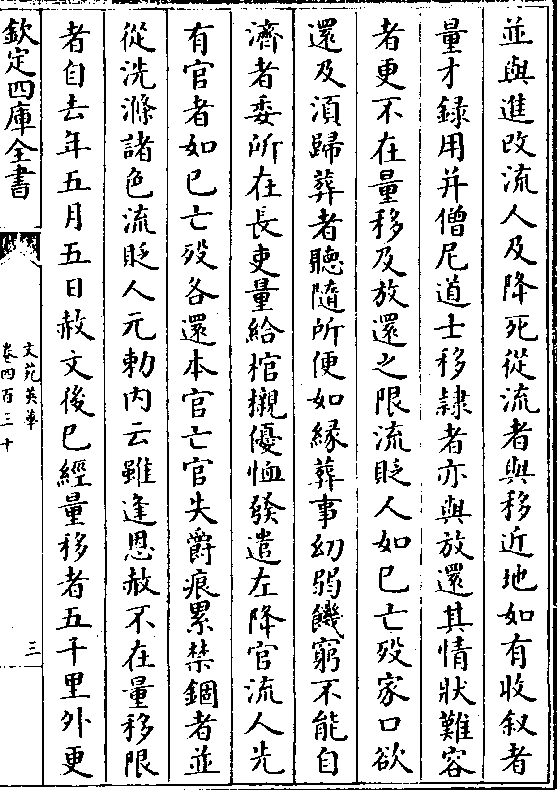 並與進改流人及降死從流者與移近地如有收叙者
量才録用并僧尼道士移隸者亦與放還其情狀難容
者更不在量移及放還之限流貶人如已亡歿家口欲
還及湏歸葬者聽隨所便如緣葬事幼弱饑窮不能自
濟者委所在長吏量給棺櫬優恤發遣左降官流人先
有官者如已亡歿各還本官亡官失爵痕累禁錮者並
從洗滌諸色流貶人元勅内云雖逢恩赦不在量移限
者自去年五月五日赦文後已經量移者五千里外更
欽定四庫全書
文苑英華
卷四百三十
三